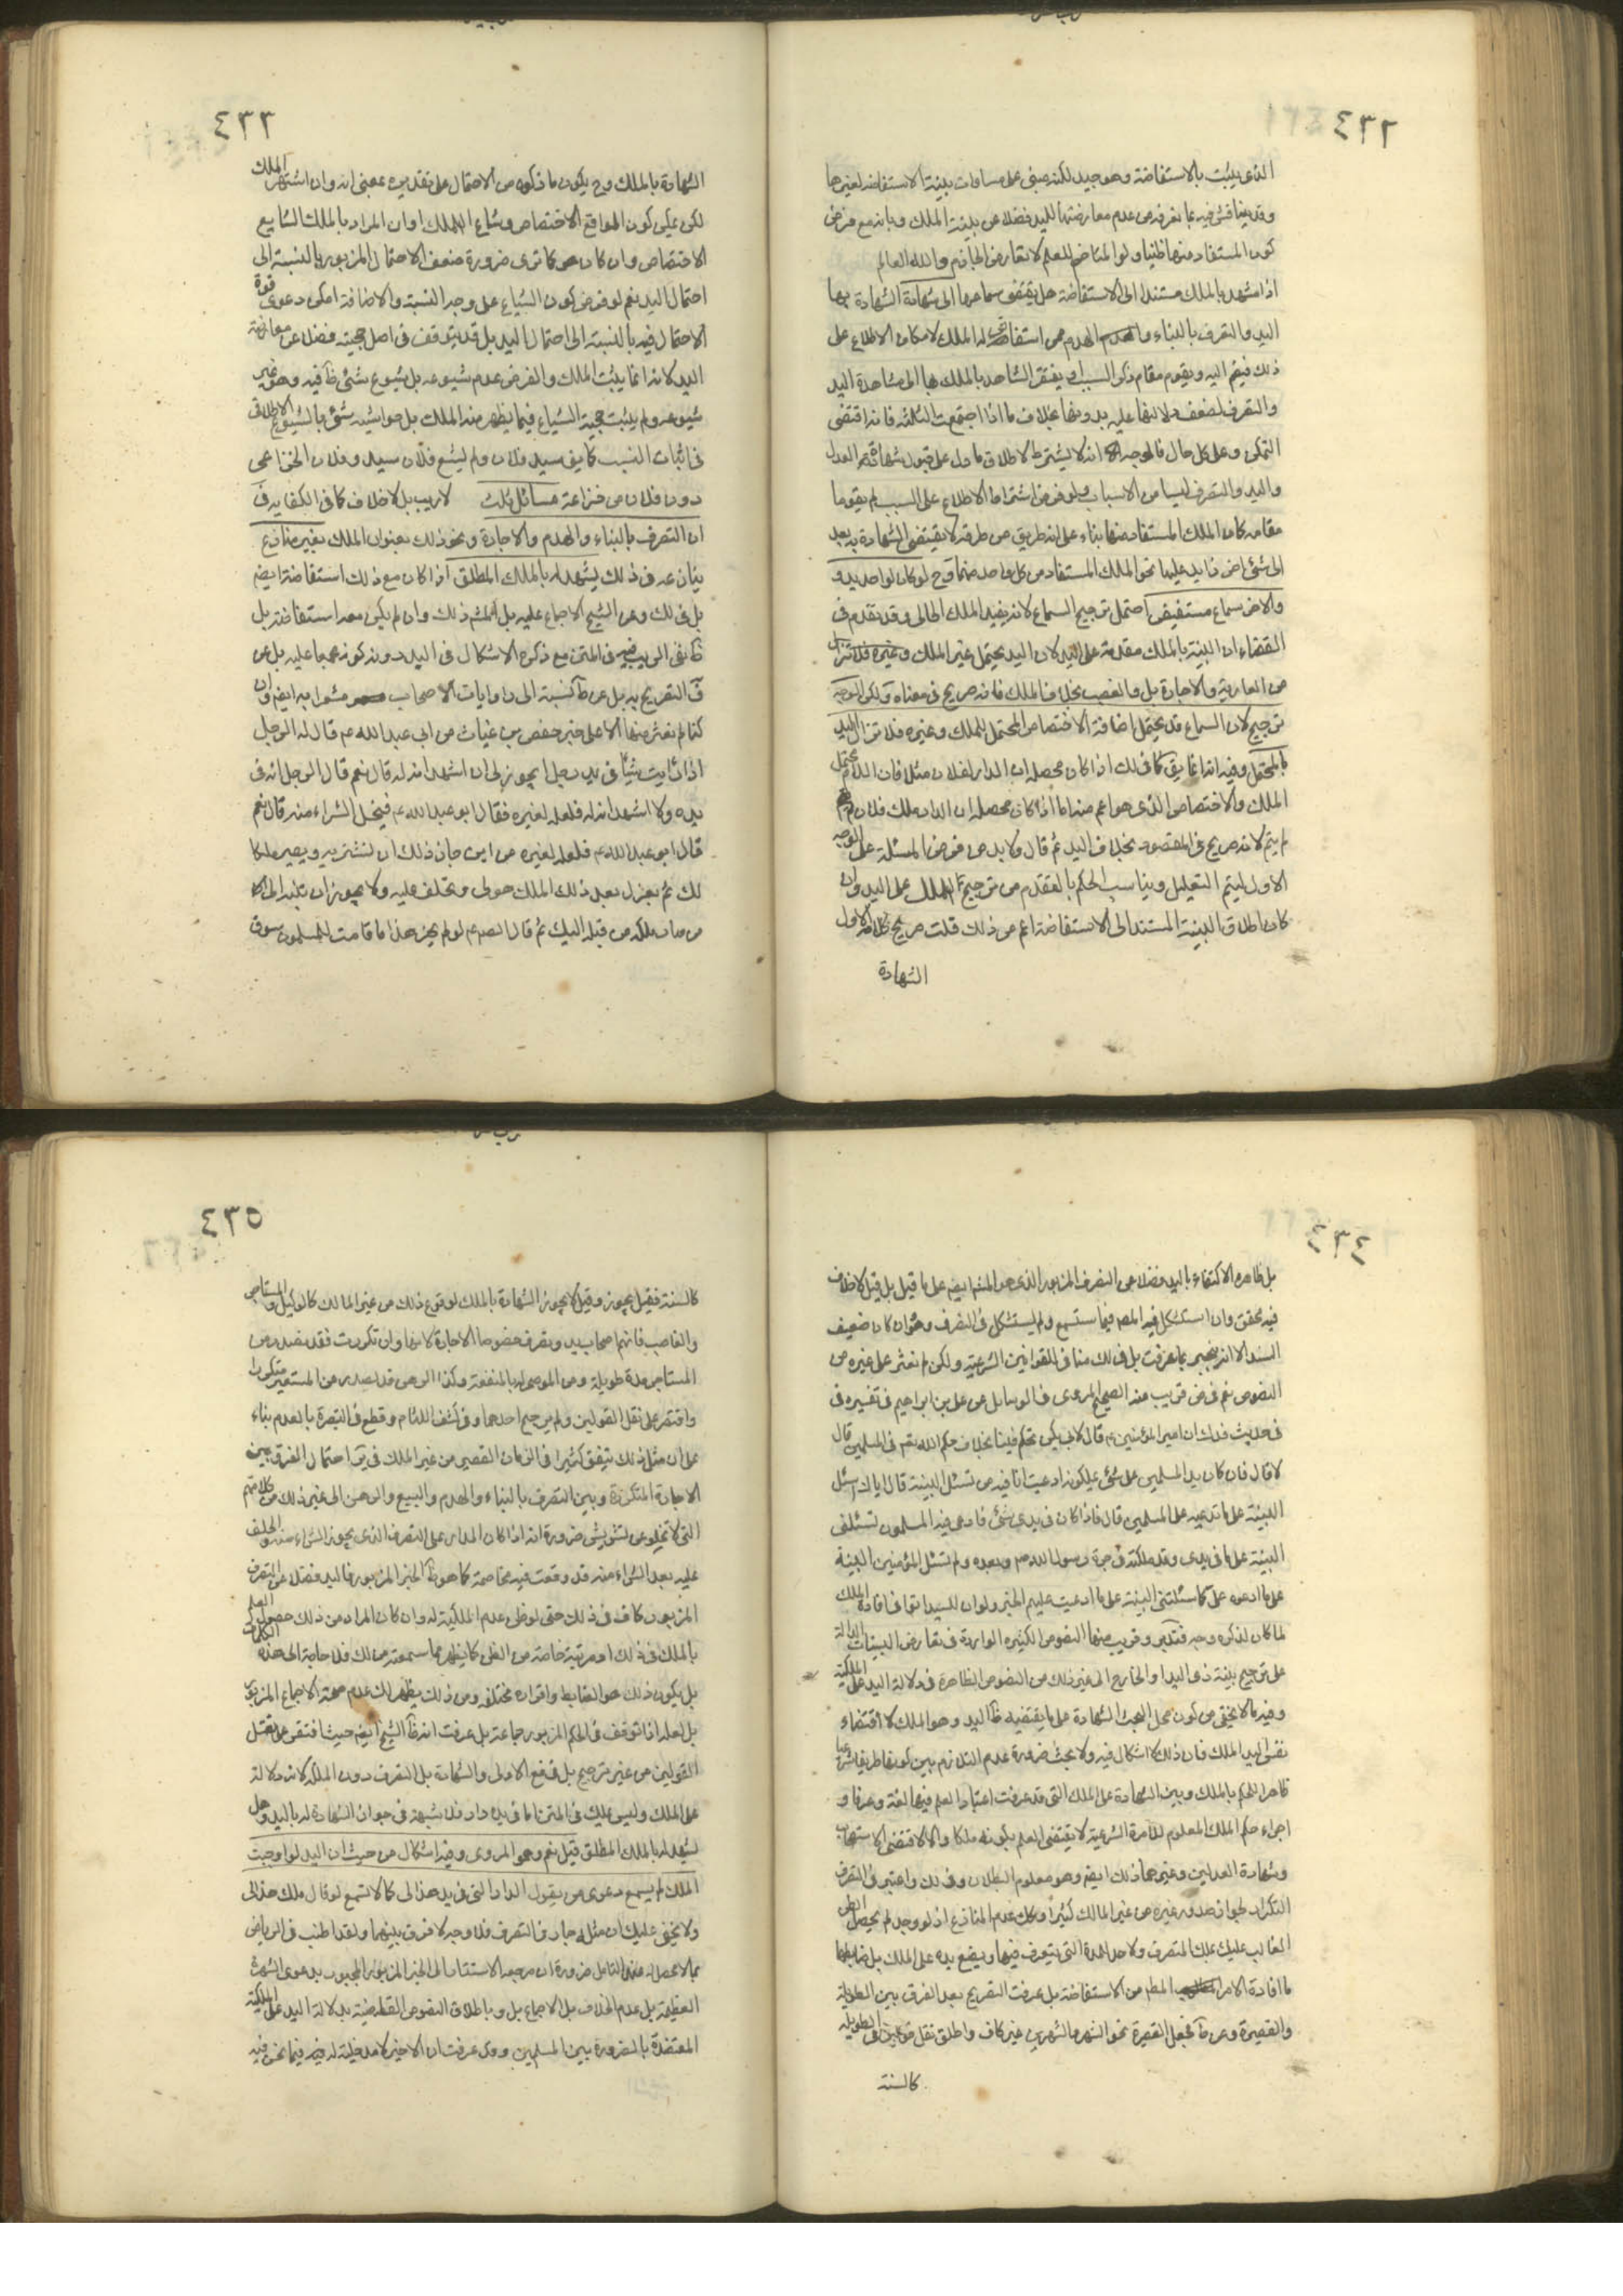 ٤٣٢
الذى يثبت بالاستفاضة وهو جيد لكنه مبنى على مساوات بينة الاستفاضة لغيرها
وقد يناقش فيه بما تعرفه من عدم معارضتها لليد فضلا عن بينة الملك وبانه مع فرض
كون المستفاد منها ظنيا ولو المتاخم للعلم لا تعارض الجازم والله العالم
اذا شهد بالملك مستندا الى الاستفاضة هل يفتقر سماعها الى شهادة الشهادة بها
اليد والتصرف بالبناء والهدم من استفاض له الملك لامكان الاطلاع على
ذلك فيضم اليه ويقوم مقام ذكر السبب او يفتقر الشاهد بالملك بها الى مشاهدة اليد
والتصرف لضعف دلالتها عليه بدونها بخلاف ما اذا اجتمعت الثلثة فانه اقتضى
التمكن وعلى كل حال فالوجه انه لا يشترط لاطلاق ما دل على قبول شهادة العدل
واليد والتصرف ليسا من الاسباب ولو فرض اشتراط الاطلاع على السبب لم يقوما
مقامه كان الملك المستفاد منها بناء على انه طريق من طرقه لا يقتضى الشهادة به بعد
الى شئ اخر زايد عليها نحو الملك المستفاد من كل واحد منها وح لو كان لواحد يد و
والاخر سماع مستفيض احتمل ترجيح السماع لانه يفيد الملك الحالى وقد تقدم فى
القضاء ان البينة بالملك مقدمة على اليد لان اليد يحتمل غير الملك وغيره فلا تزال
من العارية والاجارة بل والغصب بخلاف الملك فانه صريح فى معناه ولكن الوجه
ترجيح لان السماع قد يحتمل اضافة الاختصاص المحتمل للملك وغيره فلا تزال اليد
بالمحتمل وفيه انه انما يتم كما فى لك اذا كان محصله ان الدار لفلان مثلا فان اللام تحتمل
الملك والاختصاص الذى هو اعم منه اما اذا كان محصله ان الدار ملك فلان
لم يتم لانه صريح فى المقصود بخلاف اليد ثم قال ولا بد من فرض المسئلة على الوجه
الاول ليتم التعليل ويناسب الحكم بالمتقدم من ترجيح الملك على اليد وان
كان اطلاق البينة المستند الى الاستفاضة اعم من ذلك قلت صريح كلامه الاول
الشهادة
٤٣٣
الشهادة بالملك وح يكون ما ذكره من الاحتمال على تقديره بمعنى انه وان اشتهر الملك
لكن يمكن كون الواقع الاختصاص وشاع الملك او ان المراد بالملك الشايع
الاختصاص وان كان هو كما ترى ضرورة ضعف الاحتمال المزبور بالنسبة الى
احتمال اليد نعم لو فرض كون الشياع على وجه النسبة والاضافة امكن دعوى قوة
الاحتمال فيه بالنسبة الى احتمال اليد بل قد يتوقف فى اصل حجيته فضلا عن معارضة
اليد لانه انما يثبت الملك والفرض عدم شيوعه بل شيوع شئ ظاهر فيه وهو غير
شيوعه ولم يثبت حجية الشياع فيما يظهر منه الملك بل هو اشبه شئ بالشيوع الاطلاقى
فى اثبات النسب كما يق سيد فلان ولم يشع فلان سيد وفلان الخزاعى
دون فلان من خزاعة مسائل ثلث لا ريب بل لا خلاف كما فى الكفاية فى
ان التصرف بالبناء والهدم والاجارة ونحو ذلك بعنوان الملك بغير منازع
ينازعه فى ذلك يشهد له بالملك المطلق اذا كان مع ذلك استفاضة ايضا
بل فى لك وعن الشيخ الاجماع عليه بل لمثله ذلك وان لم يكن معه استفاضة بل
نفى الريب فى المتن مع ذكره الاشكال فى اليد دونه كونه مجمعا عليه بل عن
ف التصريح به بل عن نسبة الى روايات الاصحاب مشعرا به ايضا وان
كنا لم نعثر منها الا على خبر حفص بن غياث عن ابى عبد الله ع قال له الرجل
اذا رأيت شيئا فى يد رجل ايجوز لى ان اشهد انه له قال نعم قال الرجل انه فى
يده ولا اشهد انه له فلعله لغيره فقال ابو عبد الله ع فيحل الشراء منه قال نعم
قال ابو عبد الله ع فلعله لغيره من اين جاز ذلك ان تشتريه ويصير ملكا
لك ثم تقول بعد ذلك الملك هو لى وتحلف عليه ولا يجوز ان تنسبه الى
من صار ملكه من قبله اليك ثم قال الصادق ع لو لم يجز هذا ما قامت للمسلمين سوق
٤٣٤
بل ظاهره الاكتفاء باليد فضلا عن التصرف المزبور الذى هو المشهور ايضا على ما قيل بل قيل لا خلاف
فيه محقق وان استشكل فيه المصنف فيما ستسمع ولم يستشكل فى التصرف وهو وان كان ضعيف
السند الا انه ينجبر بما عرفت بل فى لك منافى للقوانين الشرعية ولكن لم نعثر على غيره من
النصوص نعم فى ض قريب منه الصحيح المروى فى الوسايل عن على بن ابراهيم فى تفسيره فى
فى حديث فدك ان امير المؤمنين ع قال لابى بكر تحكم فينا بخلاف حكم الله تعالى فى المسلمين قال
لا قال فان كان يد المسلمين على شئ يملكونه ادعيت انا فيه من تسئل البينة قال اياك اسئل
البينة على ما تدعيه على المسلمين قال فاذا كان فى يدى شئ فادعى فيه المسلمون تسئلنى
البينة على ما فى يدى وقد ملكته فى حيوة رسول الله ص وبعده ولم تسئل المؤمنين البينة
على ما ادعوه على كما سئلتنى البينة على ما ادعيت عليهم الخبر ولولا ان لليد اتما فى افادة الملك
لما كان لذكره وجه فتدبر وقريب منها النصوص الكثيرة الواردة فى تعارض البينات الدالة
على ترجيح بينة ذى اليد او الخارج الى غير ذلك من النصوص الظاهرة فى دلالة اليد على الملكية
وفيه ما لا يخفى من كون محل البحث الشهادة على ما يقتضيه ظاهر اليد وهو الملك لا اقتضاء
نفس اليد الملك فان ذلك لا اشكال فيه ولا بحث ضرورة عدم التلازم بين كونها طريقا شرعيا
ظاهرا للحكم بالملك وبين الشهادة على الملك التى قد عرفت اعتبار العلم فيها لغة وعرفا و
اجراء حكم الملك المعلوم للامرة الشرعية لا يقتضى العلم بكونه ملكا والا لاقتضى الاستصحاب
وشهادة العدلين وغيرهما ذلك ايضا وهو معلوم البطلان وفى لك واعتبر فى التصرف
التكرار لجواز صدوره غيره من غير المالك كثيرا وكك عدم المنازع اذ لو وجد لم يحصل الظن
الغالب عليك بملك المتصرف ولا حد للمدة التى يتصرف فيها ويضع يده على الملك بل ضابطها
ما افادة الامر المطلوب من الاستفاضة بل عرفت التصريح بعد الفرق بين الطويلة
والقصيرة وعن ط بجعل القصيرة نحو الشهر والشهرين غير كاف واطلق نقل قولين فى الطويلة
كالسنة
٤٣٥
كالسنة فقيل يجوز وقيل لا يجوز الشهادة بالملك لوقوع ذلك من غير المالك كالوكيل والمستاجر
والغاصب فانهم اصحاب يد وتصرف خصوصا الاجارة لانها وان تكررت فقد تصدر من
المستاجر مدة طويلة ومن الموصى له بالمنفعة وكذا الرهن قد يصدر من المستعير متكررا
واقتصر على نقل القولين ولم يرجح احدهما وفى كشف اللثام وقطع فى التبصرة بالعدم بناء
على ان مثل ذلك يتفق كثيرا فى الزمان القصير من غير الملك احتمال الفرق بين
الاجارة المتكررة وبين التصرف بالبناء والهدم والبيع والرهن الى غير ذلك من كلامهم
التى لا تخلو عن تشويش ضرورة انه اذا كان المدار على التصرف الذى يجوز الشراء منه والحلف
عليه بعد الشراء منه قد وقعت فيه مخاصمة كما هو ظاهر الخبر المزبور فاليد فضلا عن التصرف
المزبور كاف فى ذلك حتى لو ظن عدم الملكية له وان كان المراد من ذلك حصول العلم
بالملك فى ذلك او مرتبة خاصة من الظن كما يظهر مما سمعته من لك فلا حاجة الى هذه الكلمات
بل يكون ذلك هو الضابط وافراده مختلفة ومن ذلك يظهر لك عدم صحة الاجماع المزبور
بل لعله لذا توقف فى الحكم المزبور جماعة بل عرفت انه ظاهر الشيخ ايضا حيث اقتصر على نقل
القولين من غير ترجيح بل قطع الاولى والشهادة بل التصرف دون الملك لانه دلالة
على الملك وليس بملك فى المتن اما فى يده دار فلا شبهة فى جواز الشهادة له باليد وهل
يشهد له بالملك المطلق قيل نعم وهو المروى وفيه اشكال من حيث ان اليد لو اوجبت
الملك لم يسمع دعوى من يقول الدار التى فى يد هذا لى كما لا تسمع لو قال ملك هذا لى
ولا يخفى عليك ان مثله جار فى التصرف فلا وجه لا فرق بينهما ولقد اطنب فى الرياض
بما لا محصل له عند التامل ضرورة ان مرجعه الاستناد الى الخبر المزبور المجبور بدعوى الشهرة
العظيمة بل عدم الخلاف بل الاجماع بل وباطلاق النصوص القاضية بدلالة اليد على الملكية
المعتضدة بالضرورة بين المسلمين وقد عرفت ان الاخير لا مدخلية له فيه فيما نحن فيه